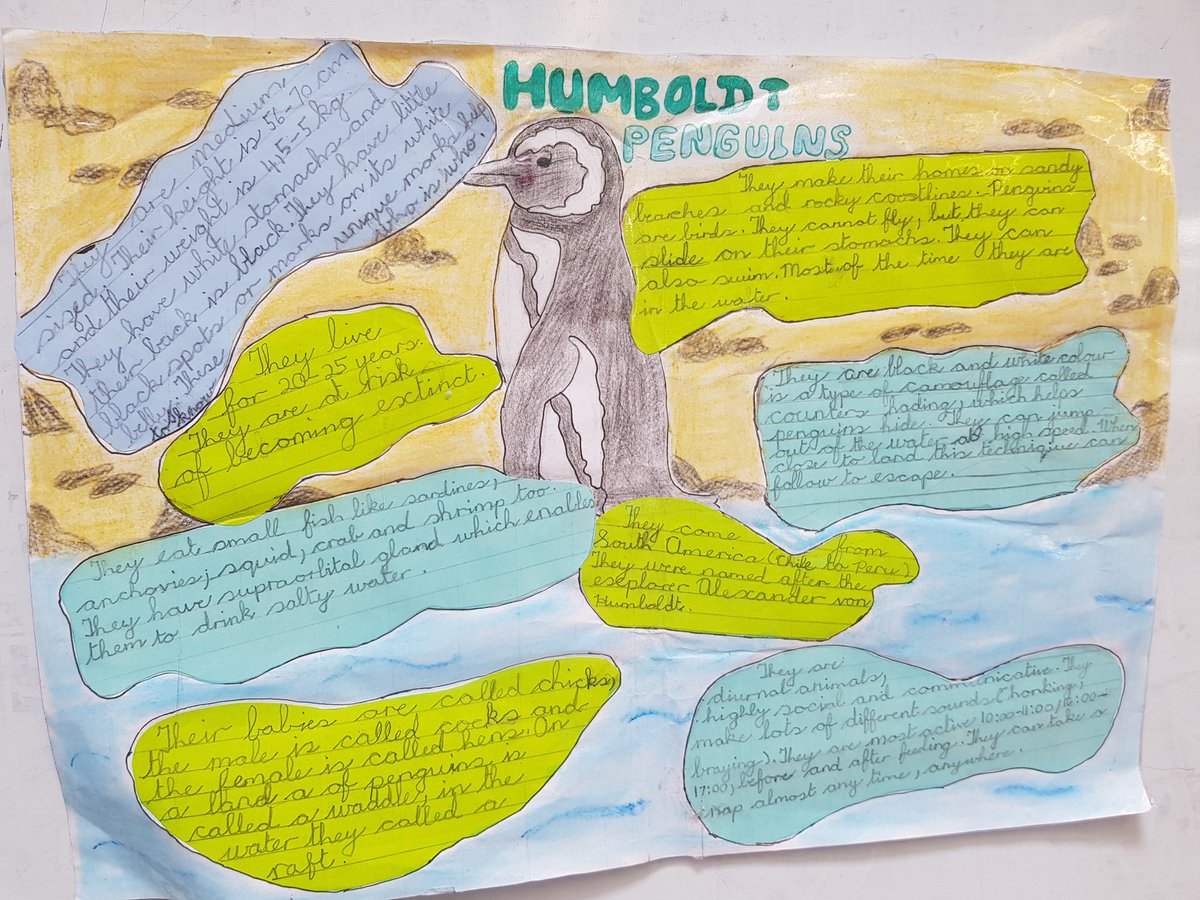 HUMBOLDT
PENGUINS
They are medium
sized. Their height is 56-70 cm
and their weight is 4,15-5 kg.
They have white stomachs and
their back is black. They have little
black spots or marks on its white
belly. These unique marks help
to know who is who.
They make their homes on sandy
beaches and rocky coostlines. Penguins
are birds. They cannot fly, but they can
slide on their stomachs. They can
also swim. Most of the time they are
in the water.
They live
for 20-25 years.
They are at risk
of becoming exctinct.
They are black and white colour
is a type of camouflage called
counters hading, which helps
penguins hide. They can jump
out of the water at high speed. When
close to land this technique can
follow to escape.
They eat small fish like sardines,
anchovies, squid, crab and shrimp too.
They have supraorbital gland which enables
them to drink salty water.
They come from
South America (Chile to Peru)
They were named after the
esxplorer Alexander von
Humboldt.
Their babies are called chicks,
the male is called cocks and
the female is called hens. On
a land a of penguins is
called a waddle, in the
water they called a
raft.
They are
diurnal animals,
highly social and communicative. They
make lots of different sounds (honking,
braying). They are most active 10:00-11:00/16:00-
17:00, before and after feeding. They can take a
nap almost any time, anywhere.